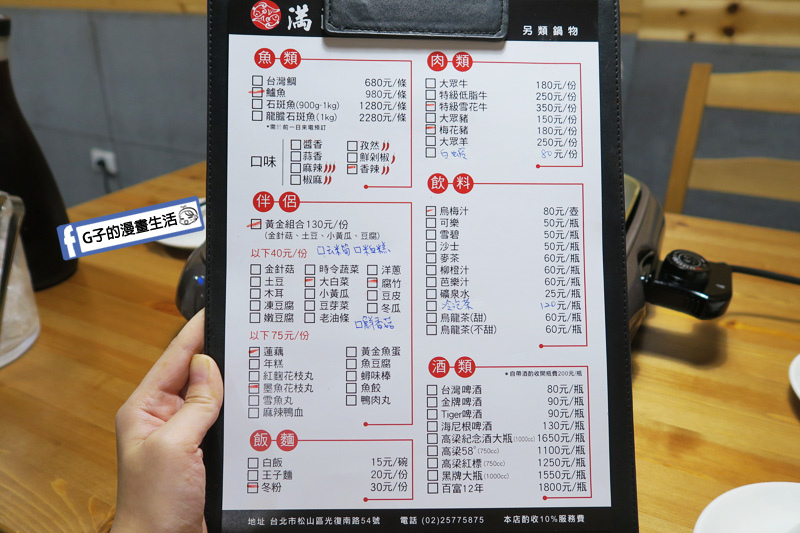 滿
另類鍋物
魚類
台灣鯛 680元/條
鱸魚 980元/條
石斑魚(900g-1kg) 1280元/條
龍膽石斑魚(1kg) 2280元/條
*需於前一日來電預訂
口味
醬香 孜然
蒜香 鮮剁椒
麻辣 香辣
椒麻
伴侶
黃金組合130元/份
(金針菇、土豆、小黃瓜、豆腐)
以下40元/份
金針菇 時令蔬菜 洋蔥
土豆 大白菜 腐竹
木耳 小黃瓜 豆皮
凍豆腐 豆芽菜 冬瓜
嫩豆腐 老油條 鮮香菇
以下75元/份
蓮藕 黃金魚蛋
年糕 魚豆腐
紅麴花枝丸 蟳味棒
墨魚花枝丸 魚餃
雪魚丸 鴨肉丸
麻辣鴨血
飯麵
白飯 15元/碗
王子麵 20元/份
冬粉 30元/份
肉類
大眾牛 180元/份
特級低脂牛 250元/份
特級雪花牛 350元/份
大眾豬 150元/份
梅花豬 180元/份
大眾羊 250元/份
白蝦 80元/份
飲料
烏梅汁 80元/壺
可樂 50元/瓶
雪碧 50元/瓶
沙士 50元/瓶
麥茶 60元/瓶
柳橙汁 60元/瓶
芭樂汁 60元/瓶
礦泉水 25元/瓶
冷泡茶 120元/瓶
烏龍茶(甜) 60元/瓶
烏龍茶(不甜) 60元/瓶
酒類
*自帶酒酌收開瓶費200元/瓶
台灣啤酒 80元/瓶
金牌啤酒 90元/瓶
Tiger啤酒 90元/瓶
海尼根啤酒 130元/瓶
高梁紀念酒大瓶(1000cc) 1650元/瓶
高梁58°(750cc) 1100元/瓶
高梁紅標(750cc) 1250元/瓶
黑牌大瓶(1000cc) 1550元/瓶
百富12年 1800元/瓶
地址 台北市松山區光復南路54號 電話 (02)25775875 本店酌收10%服務費
G子的漫畫生活